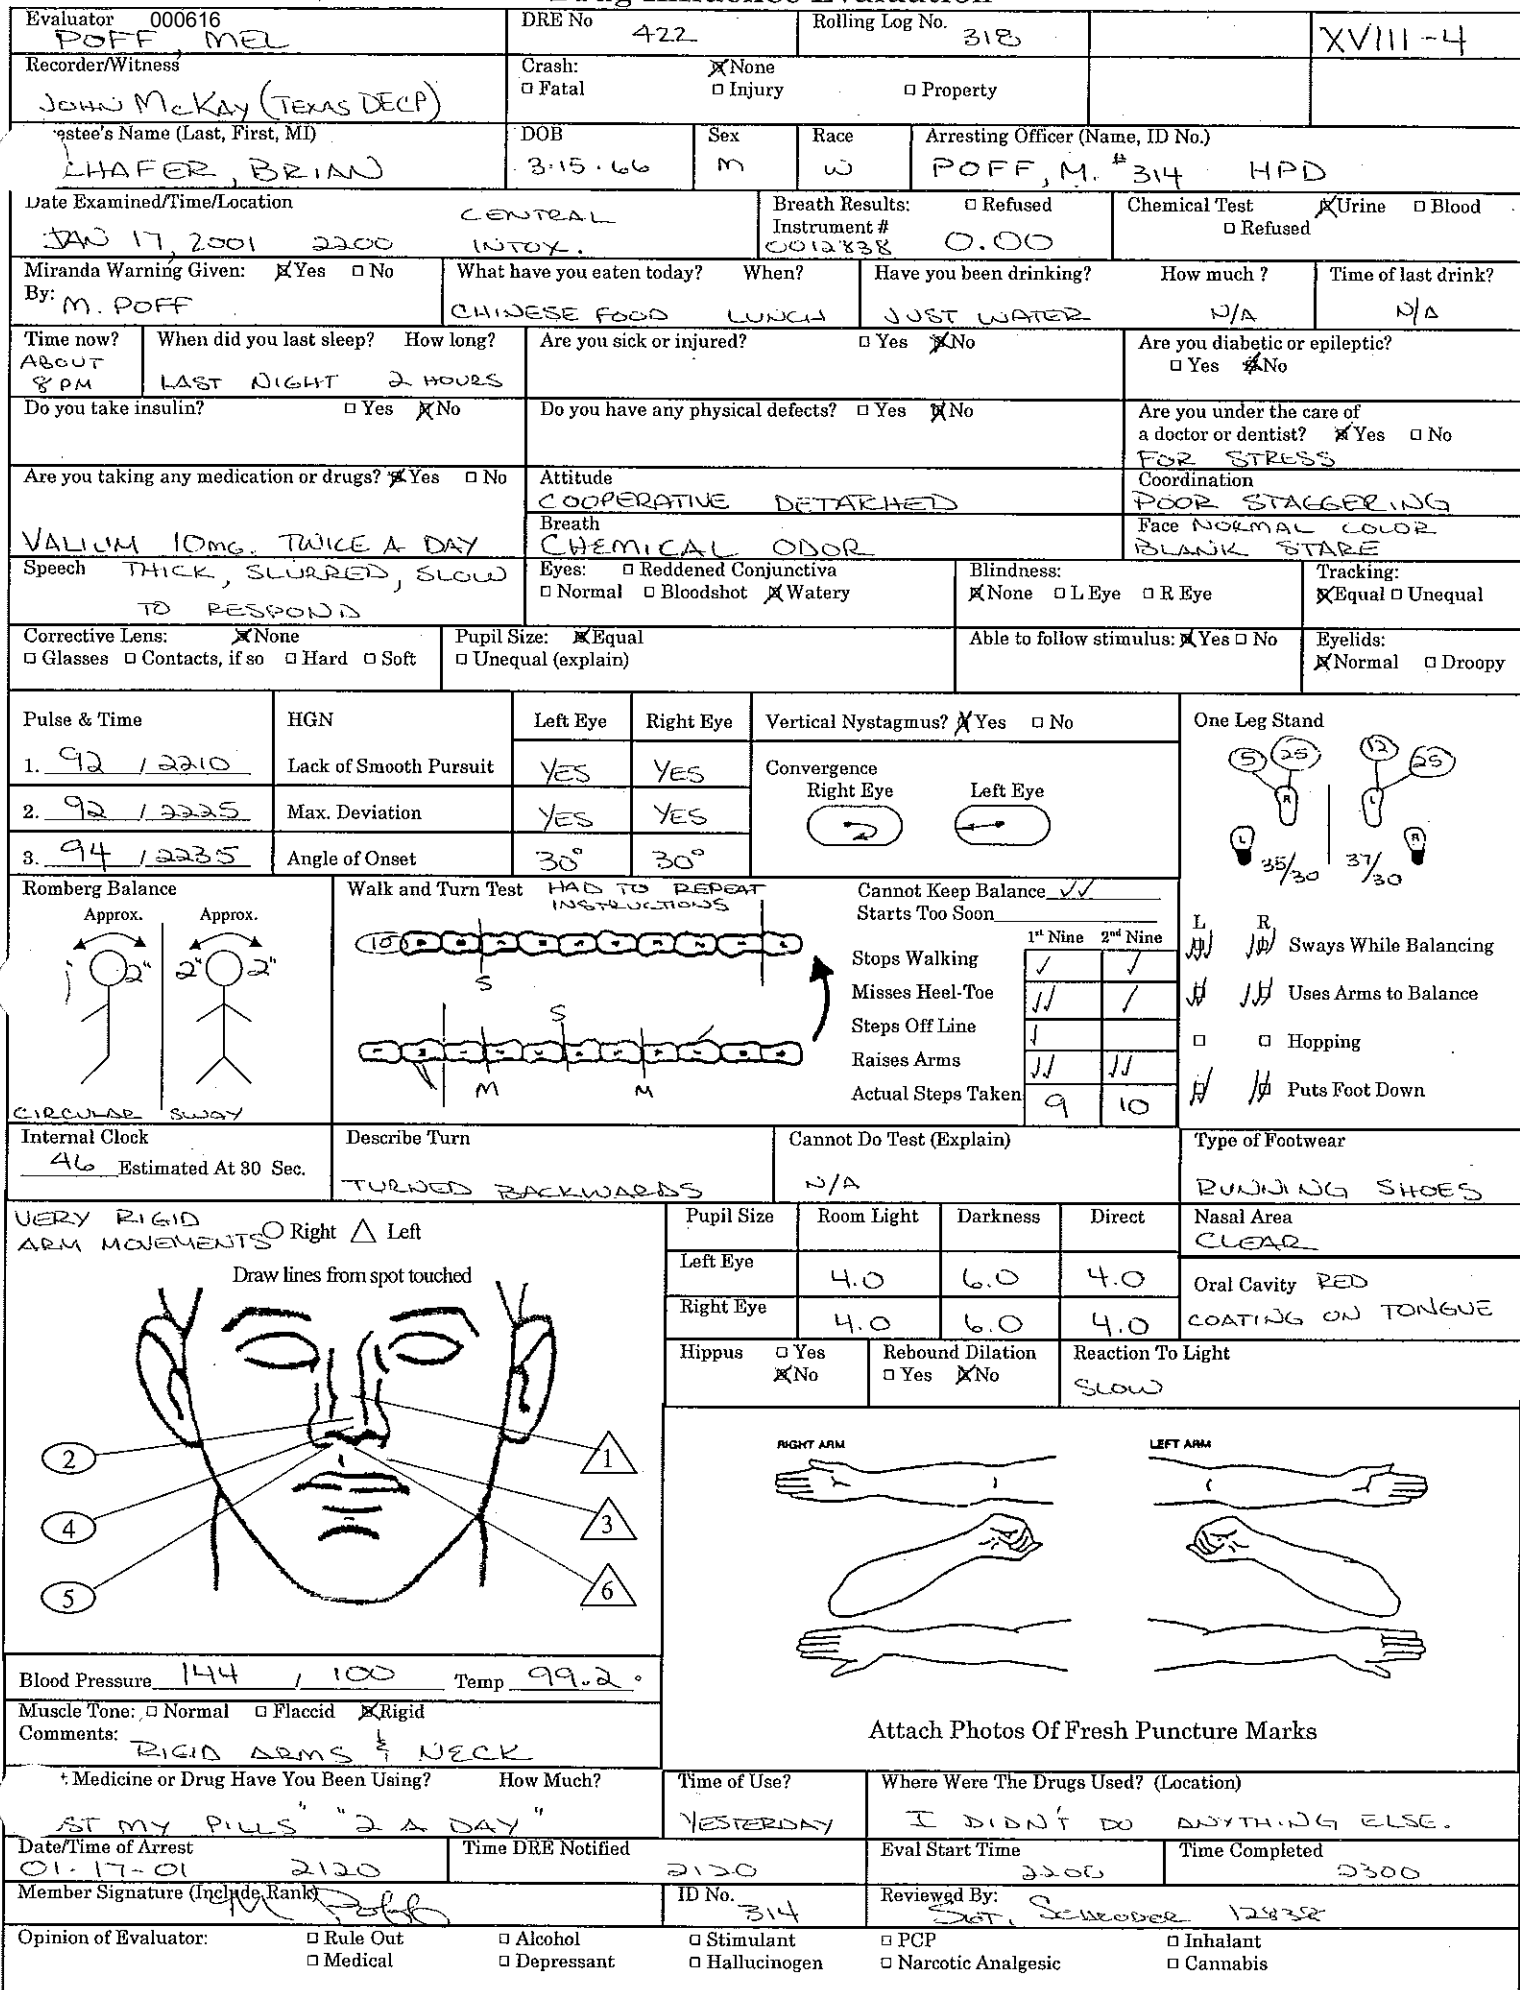 Drug Influence Evaluation
Evaluator 000616
POFF, MEL
DRE No
422
Rolling Log No.
318
XVIII-4
Recorder/Witness
JOHN McKAY (TEXAS DECP)
Crash: ☒ None
□ Fatal □ Injury □ Property
estee's Name (Last, First, MI)
HAFER, BRIAN
DOB
3-15-66
Sex
M
Race
W
Arresting Officer (Name, ID No.)
POFF, M. #314 HPD
Date Examined/Time/Location
JAN 17, 2001 2200 CENTRAL
INTOX.
Breath Results: □ Refused
Instrument #
0012838 0.00
Chemical Test ☒ Urine □ Blood
□ Refused
Miranda Warning Given: ☒ Yes □ No
By: M. POFF
What have you eaten today? When?
CHINESE FOOD LUNCH
Have you been drinking? How much ?
JUST WATER N/A
Time of last drink?
N/A
Time now?
ABOUT
8 PM
When did you last sleep? How long?
LAST NIGHT 2 HOURS
Are you sick or injured? □ Yes ☒ No
Are you diabetic or epileptic?
□ Yes ☒ No
Do you take insulin? □ Yes ☒ No
Do you have any physical defects? □ Yes ☒ No
Are you under the care of
a doctor or dentist? ☒ Yes □ No
FOR STRESS
Are you taking any medication or drugs? ☒ Yes □ No
VALIUM 10mg. TWICE A DAY
Attitude
COOPERATIVE DETATCHED
Coordination
POOR STAGGERING
Breath
CHEMICAL ODOR
Face NORMAL COLOR
BLANK STARE
Speech THICK, SLURRED, SLOW
TO RESPOND
Eyes: □ Reddened Conjunctiva
□ Normal □ Bloodshot ☒ Watery
Blindness:
☒ None □ L Eye □ R Eye
Tracking:
☒ Equal □ Unequal
Corrective Lens: ☒ None
□ Glasses □ Contacts, if so □ Hard □ Soft
Pupil Size: ☒ Equal
□ Unequal (explain)
Able to follow stimulus: ☒ Yes □ No
Eyelids:
☒ Normal □ Droopy
Pulse & Time
1. 92 / 2210
2. 92 / 2225
3. 94 / 2235
HGN Left Eye Right Eye
Lack of Smooth Pursuit YES YES
Max. Deviation YES YES
Angle of Onset 30° 30°
Vertical Nystagmus? ☒ Yes □ No
Convergence
Right Eye Left Eye
One Leg Stand
5 25 12 25
R L
L R
35/30 37/30
Romberg Balance
Approx. Approx.
2" 2" 2"
CIRCULAR SWAY
Walk and Turn Test HAD TO REPEAT
INSTRUCTIONS
10
S
S
M M
Cannot Keep Balance ✓✓
Starts Too Soon
1st Nine 2nd Nine
Stops Walking ✓ ✓
Misses Heel-Toe ✓✓ ✓
Steps Off Line ✓
Raises Arms ✓✓ ✓✓
Actual Steps Taken 9 10
L R
Sways While Balancing
Uses Arms to Balance
□ □ Hopping
Puts Foot Down
Internal Clock
46 Estimated At 30 Sec.
Describe Turn
TURNED BACKWARDS
Cannot Do Test (Explain)
N/A
Type of Footwear
RUNNING SHOES
VERY RIGID
ARM MOVEMENTS
○ Right △ Left
Draw lines from spot touched
2 1
4 3
5 6
Pupil Size Room Light Darkness Direct
Left Eye 4.0 6.0 4.0
Right Eye 4.0 6.0 4.0
Nasal Area
CLEAR
Oral Cavity RED
COATING ON TONGUE
Hippus □ Yes
☒ No
Rebound Dilation
□ Yes ☒ No
Reaction To Light
SLOW
RIGHT ARM LEFT ARM
Attach Photos Of Fresh Puncture Marks
Blood Pressure 144 / 100 Temp 99.2 °
Muscle Tone: □ Normal □ Flaccid ☒ Rigid
Comments:
RIGID ARMS & NECK
Medicine or Drug Have You Been Using? How Much?
ST MY PILLS" "2 A DAY"
Time of Use?
YESTERDAY
Where Were The Drugs Used? (Location)
I DIDN'T DO ANYTHING ELSE.
Date/Time of Arrest
01-17-01 2120
Time DRE Notified
2120
Eval Start Time
2200
Time Completed
2300
Member Signature (Include Rank)
M Poff
ID No.
314
Reviewed By:
SGT. 12838
Opinion of Evaluator: □ Rule Out □ Alcohol □ Stimulant □ PCP □ Inhalant
□ Medical □ Depressant □ Hallucinogen □ Narcotic Analgesic □ Cannabis